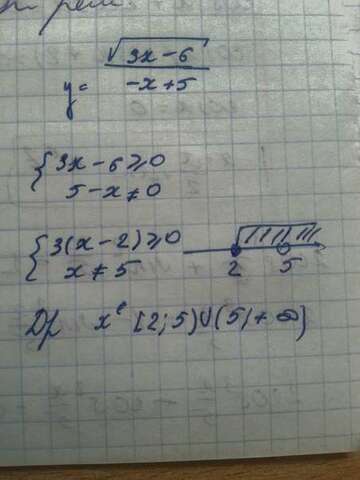 y = √(3x-6) / (-x+5)
{ 3x-6≥0
5-x≠0
{ 3(x-2)≥0
x≠5
2 5
Dр x∈ [2;5)∪(5;+∞)